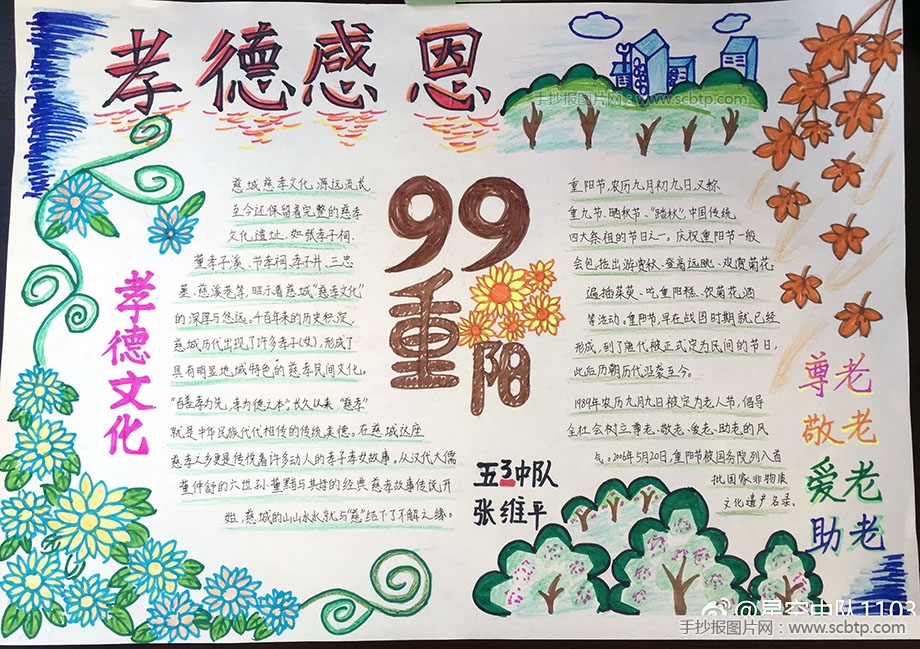 孝德感恩
手抄报图片网:www.scbtp.com
孝德文化
慈城慈孝文化源远流长
至今还保留着完整的慈孝
文化遗址,如张孝子祠、
董孝子溪、节孝祠、孝子井、三忠
墓、慈溪苑等,昭示着慈城“慈孝文化”
的深厚与悠远。千百年来的历史积淀,
慈城历代出现了许多孝子(女),形成了
具有明显地域特色的慈孝民间文化。
“百善孝为先,孝为德之本”,长久以来“慈孝”
就是中华民族代代相传的传统美德。在慈城这座
慈孝之乡更是传役着许多动人的孝子孝女故事。从汉代大儒
董仲舒的六世孙董黯与其母的经典慈孝故事传民开
始,慈城的山山水水就与“慈”结下了不解之缘。
99
重阳
五3中队
张维平
重阳节,农历九月初九日,又称
重九节、晒秋节、“踏秋”,中国传统
四大祭祖的节日之一。庆祝重阳节一般
会包括出游赏秋、登高远眺、观赏菊花、
遍插茱萸、吃重阳糕、饮菊花酒
等活动。重阳节,早在战国时期就已经
形成,到了唐代被正式定为民间的节日,
此后历朝历代沿袭至今。
1989年农历九月九日被定为老人节,倡导
全社会树立尊老、敬老、爱老、助老的风
气。2006年5月20日,重阳节被国务院列入首
批国家非物质
文化遗产名录。
尊老
敬老
爱老
助老
@星空中队1103
手抄报图片网:www.scbtp.com